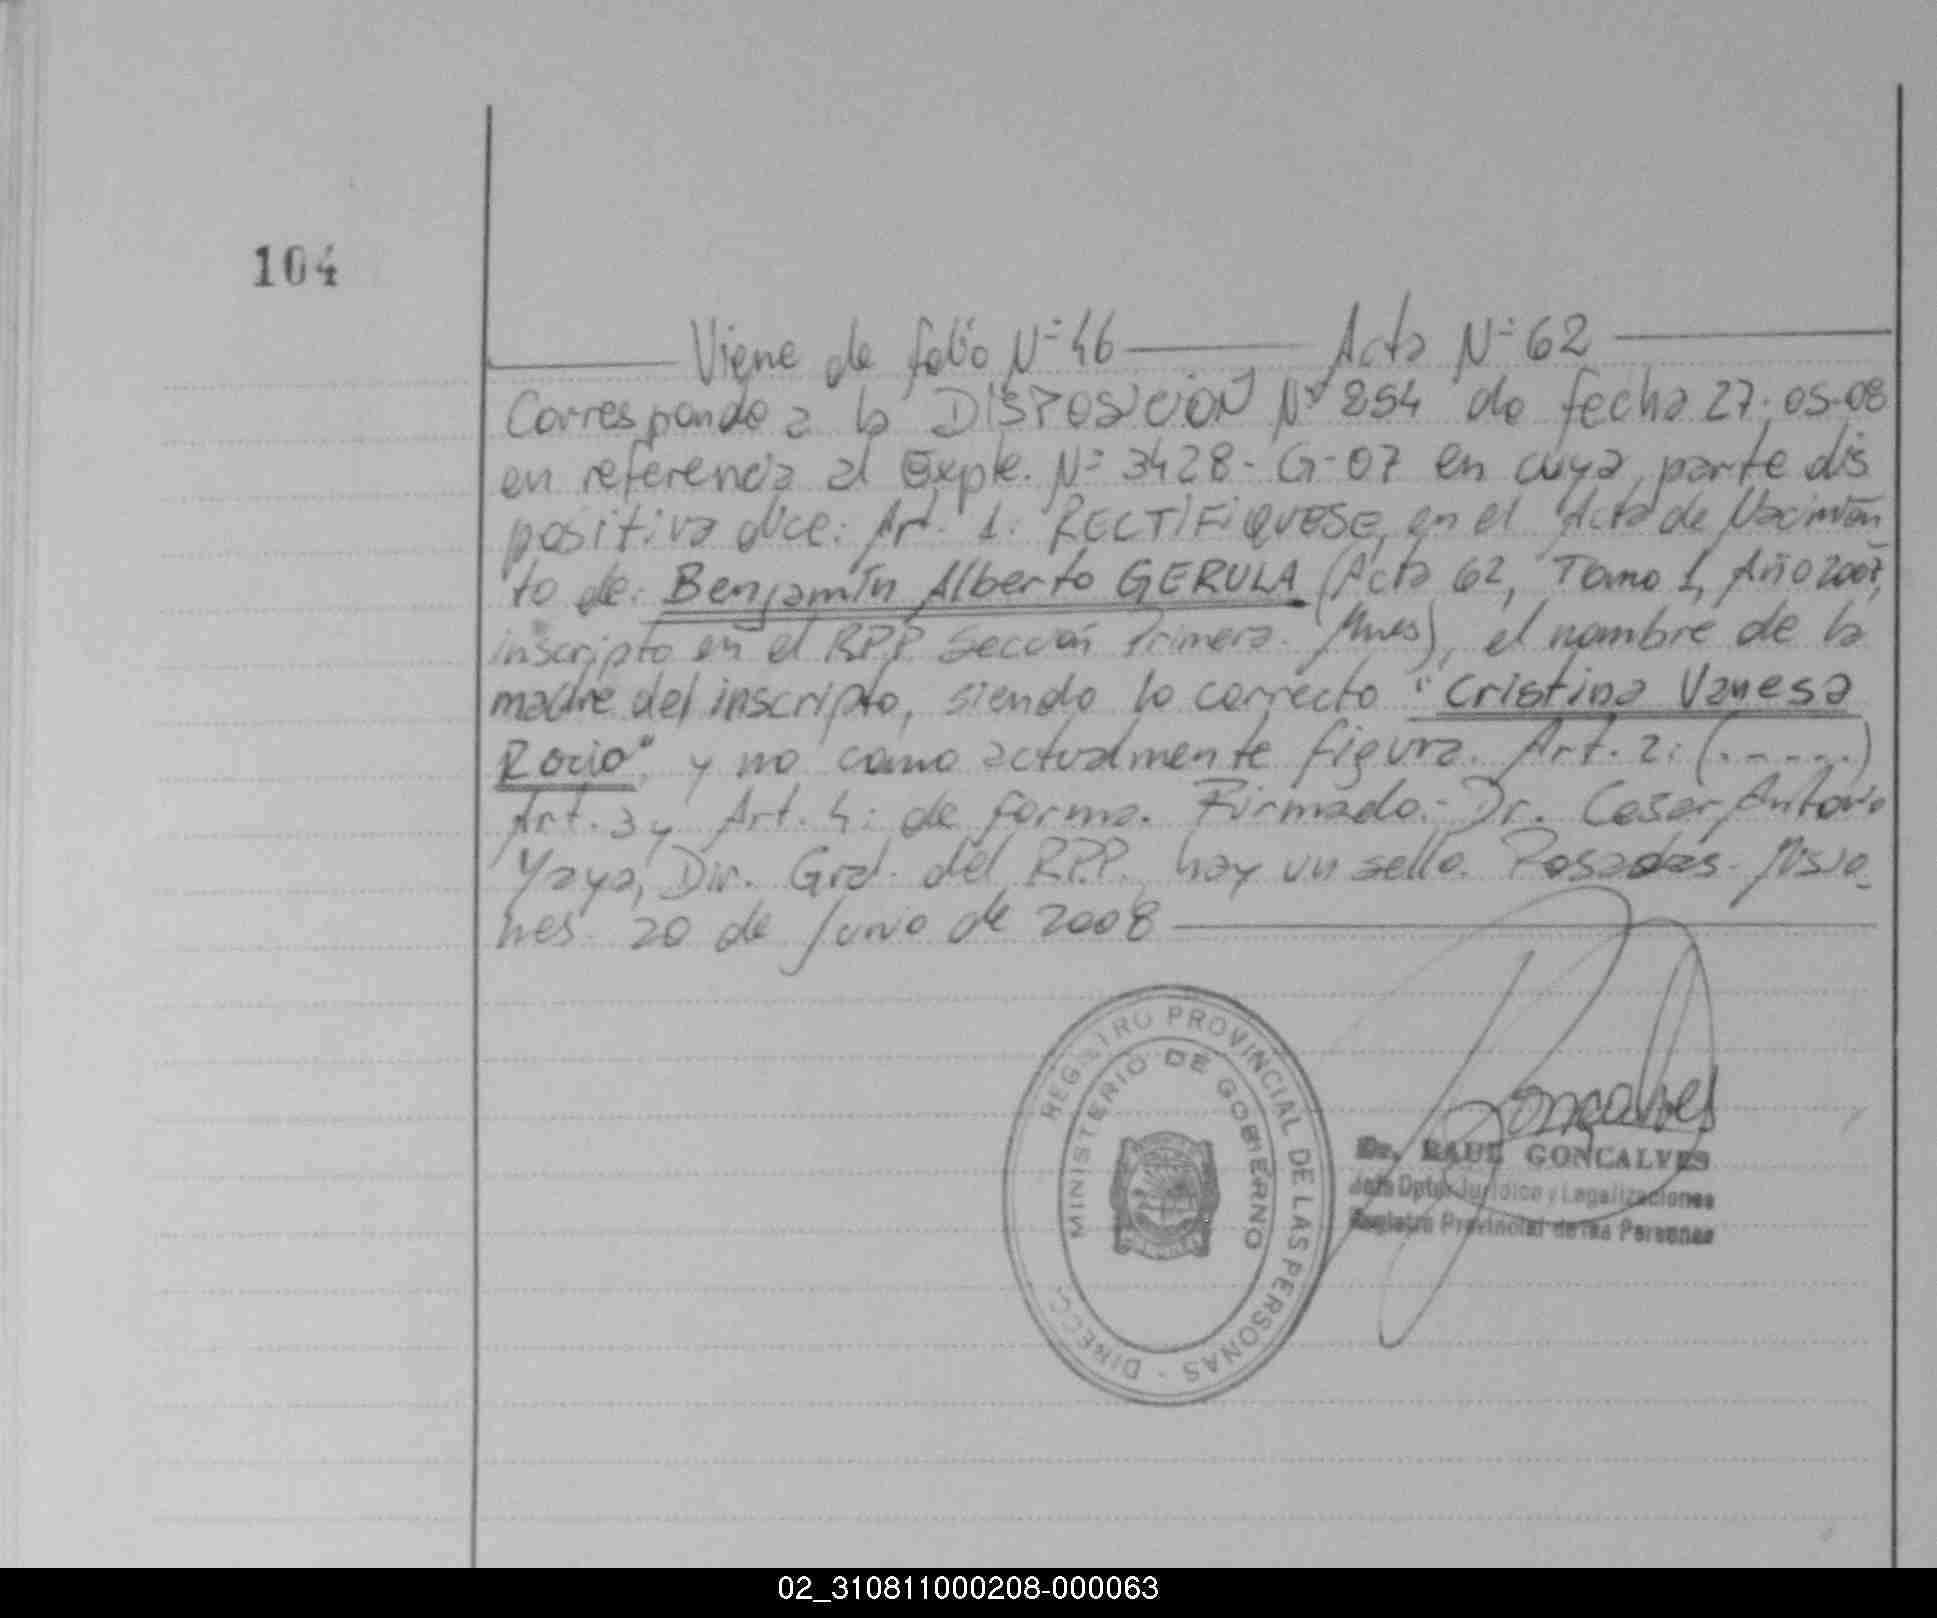 104
Viene de folio Nº 46 Acta Nº 62
Corresponde a la DISPOSICIÓN Nº 854 de fecha 27-05-08
en referencia al Expte. Nº 3428-G-07 en cuya parte dis
positiva dice: Art. 1: RECTIFIQUESE, en el Acta de Nacimien
to de: Benjamín Alberto GERULA (Acta 62, Tomo 1, Año 2007,
inscripto en el RPP. Sección Primera. Mnes), el nombre de la
madre del inscripto, siendo lo correcto "Cristina Vanesa
Rocio", y no como actualmente figura. Art. 2: (......)
Art. 3 y Art. 4: de forma. Firmado: Dr. Cesar Antonio
Yaya, Dir. Gral. del RPP., hay un sello. Posadas- Misio_
nes. 20 de Junio de 2008
REGISTRO PROVINCIAL DE LAS PERSONAS - DIRECC
MINISTERIO DE GOBIERNO
Goncalves
Dr. RAUL GONCALVES
Jefe Dpto. Jurídico y Legalizaciones
Registro Provincial de las Personas
02_310811000208-000063